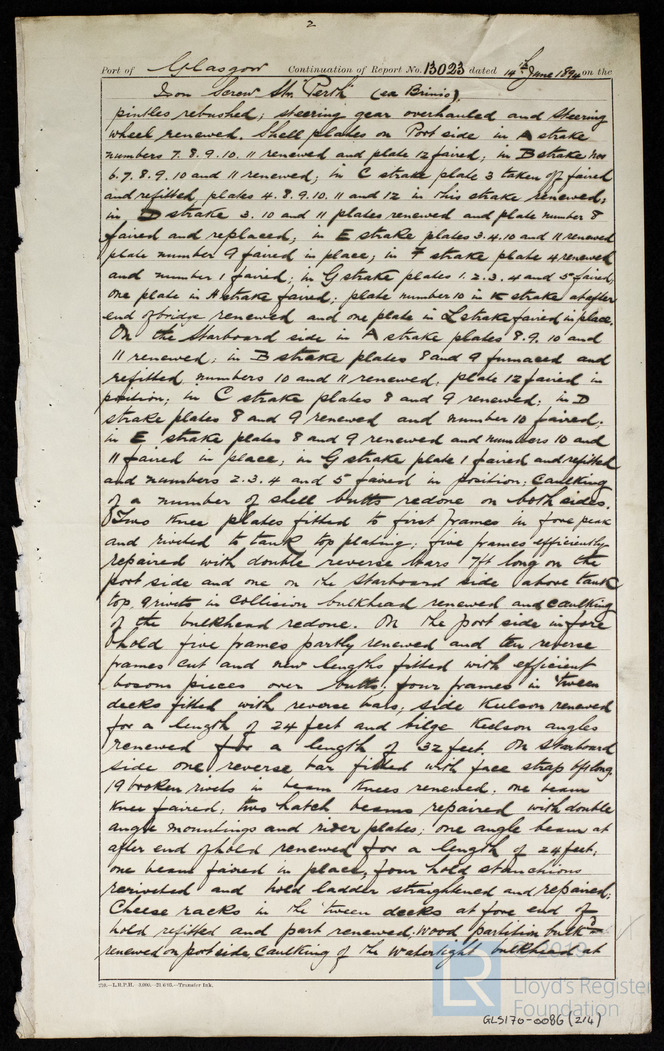 2
Port of Glasgow Continuation of Report No. 13023 dated 14th June 1894 on the
Iron Screw Str "Perth" (ex Brinio),
pintles rebushed; steering gear overhauled and steering
wheel renewed. Shell plates on Port side in A strake
numbers 7.8.9.10.11 renewed and plate 12 faired; in B strake nos
6.7.8.9.10 and 11 renewed; in C strake plate 3 taken off faired
and refitted, plates 4.8.9.10.11 and 12 in this strake renewed;
in D strake 3.10 and 11 plates renewed and plate number 8
faired and replaced; in E strake plates 3.4.10 and 11 renewed
plate number 9 faired in place; in F strake plate 4 renewed
and number 1 faired; in G strake plates 1.2.3.4 and 5 faired;
one plate in H strake faired; plate number 10 in K strake at after
end of bridge renewed and one plate in L strake faired in place.
On the Starboard side in A strake plates 8.9.10 and
11 renewed; in B strake plates 8 and 9 furnaced and
refitted numbers 10 and 11 renewed; plate 12 faired in
position; in C strake plates 8 and 9 renewed; in D
strake plates 8 and 9 renewed and number 10 faired;
in E strake plates 8 and 9 renewed and numbers 10 and
11 faired in place; in G strake plate 1 faired and refitted
and numbers 2.3.4 and 5 faired in position; caulking
of a number of shell butts redone on both sides.
Two knee plates fitted to first frames in fore peak
and riveted to tank top plating; five frames efficiently
repaired with double reverse bars 7ft long on the
port side and one on the starboard side above tank
top. 9 rivets in collision bulkhead renewed and caulking
of the bulkhead redone. On the port side in fore
hold five frames partly renewed and ten reverse
frames cut and new lengths fitted with efficient
bosom pieces over butts; four frames in 'tween
decks fitted with reverse bars; side Keelson renewed
for a length of 24 feet and bilge Keelson angles
renewed for a length of 32 feet. On starboard
side one reverse bar fitted with face strap 6ft long
19 broken rivets in beam knees renewed; one beam
knee faired; two hatch beams repaired with double
angle mountings and rider plates; one angle beam at
after end of hold renewed for a length of 24 feet;
one beam faired in place, four hold stanchions
reriveted and hold ladder straightened and repaired;
Cheese racks in the 'tween decks at fore end of
hold refitted and part renewed. Wood partition bulkd
renewed on port side, caulking of the watertight bulkhead at
210.—L.R.P.H. 3,000.—21/6/93.—Transfer Ink.
LR
© 2019
Lloyd's Register
Foundation
GLS170-0086 (2/4)